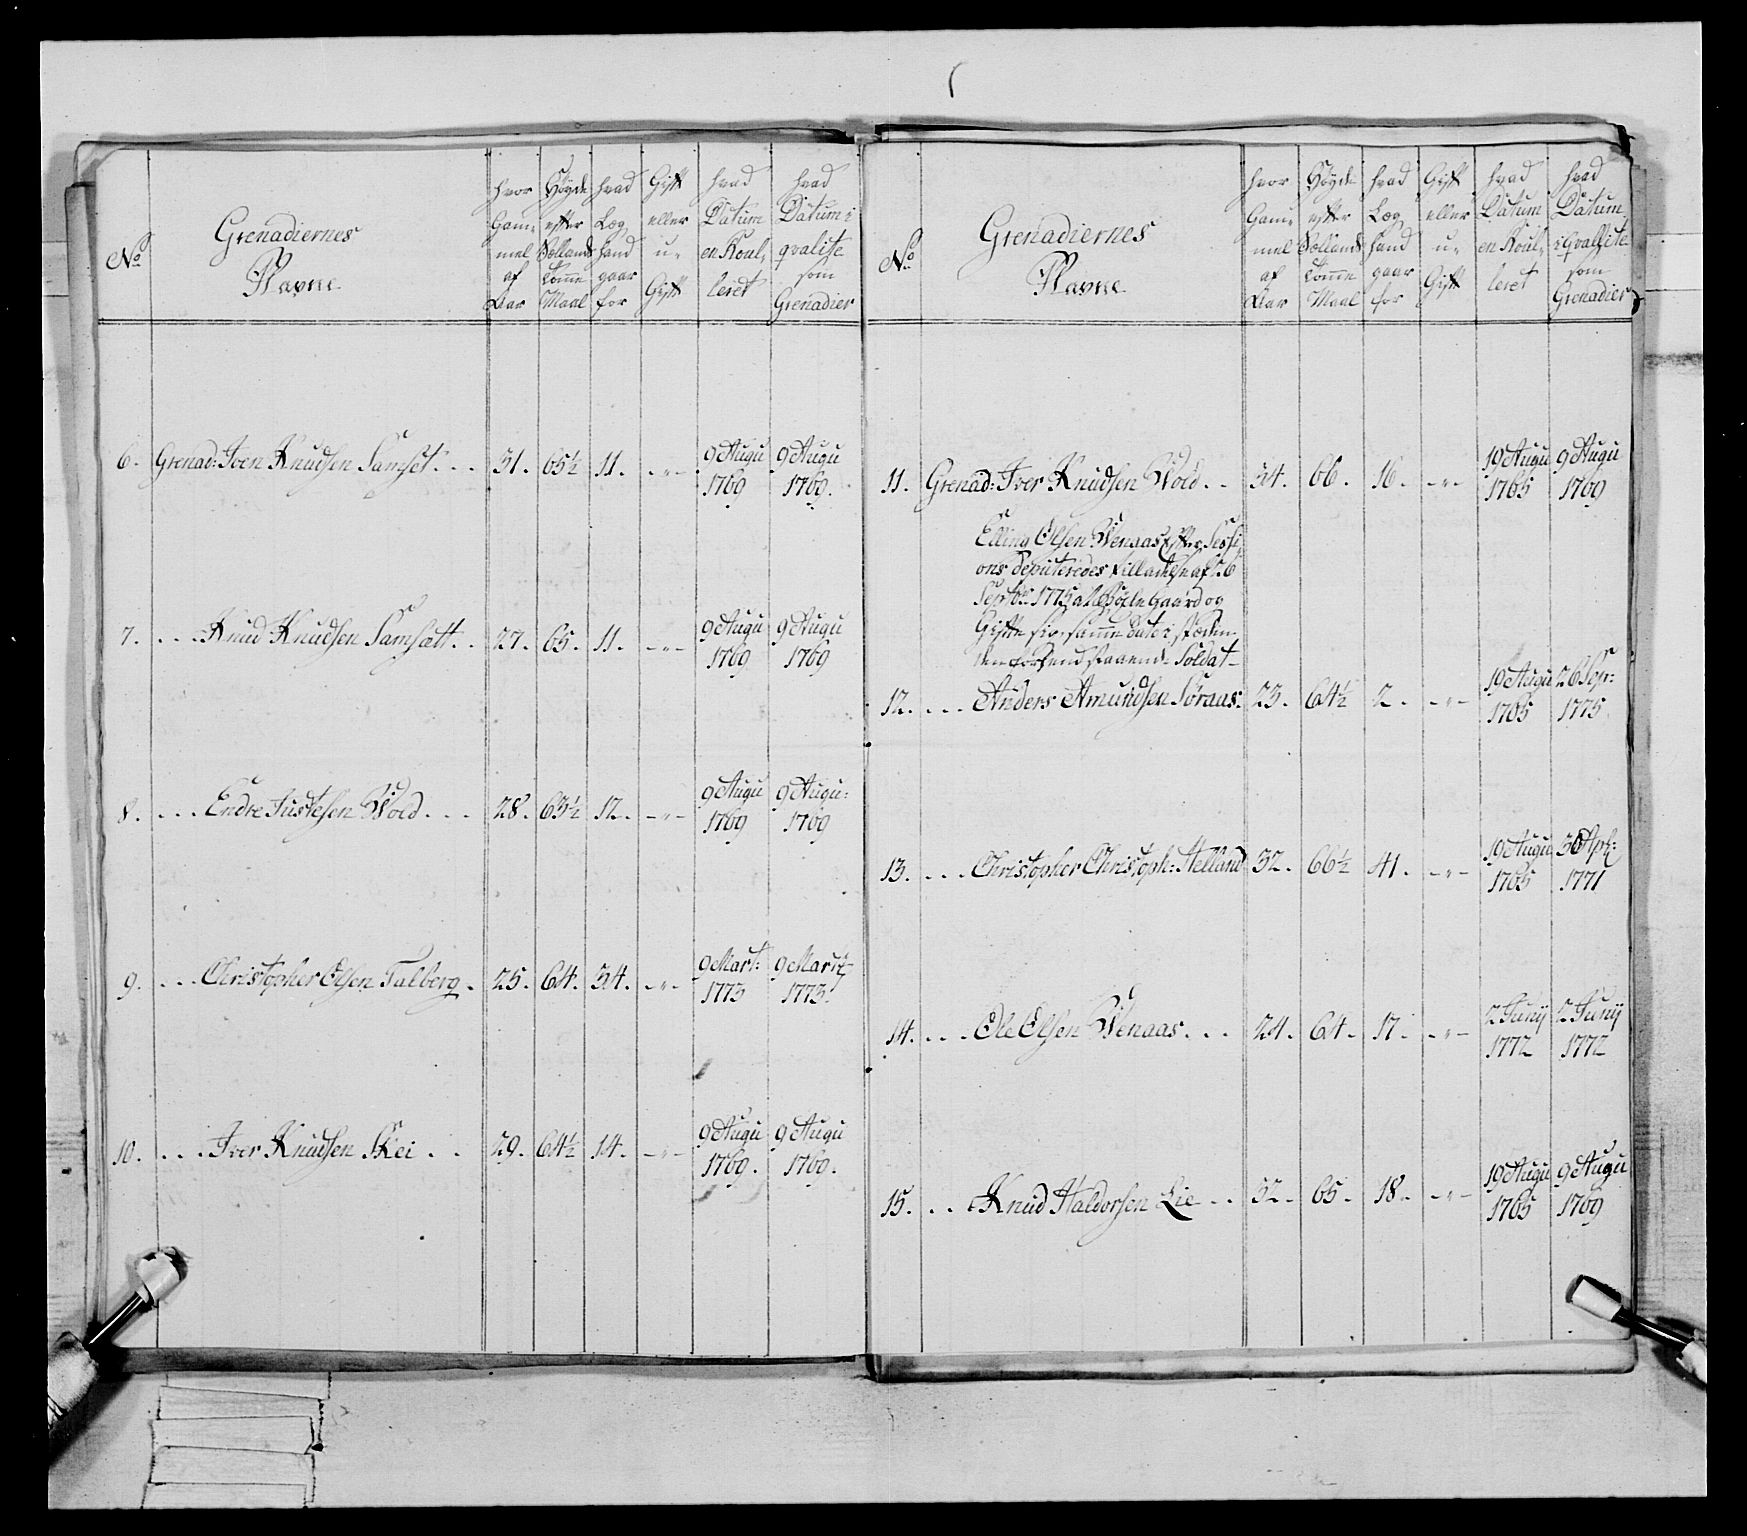 No
Grenadiernes
Navne
hvor
Gam-
mel
af
Aar
Höyde
efter
Sollands
Tomme
Maal
hvad
Læg
hand
gaar
for
Gift
eller
u-
Gift
hvad
Datum
en Roul-
leret
hvad
Datum i
qvalite
som
Grenadier
6. Grenad: Iven Knudsen Samset . . . 31. 65½ 11. -"- 9 Augu 1769 9 Augu 1769.
7. . . . Knud Knudsen Samsætt . . 27. 65. 11. -"- 9 Augu 1769 9 Augu 1769
8. . . . Endre Justesen Wold . . . 28. 63½ 12. -"- 9 Augu 1769 9 Augu: 1769
9. . . . Christopher Olsen Talberg . 25. 64. 34. -"- 9 Mart: 1773 9 Martz 1773.
10. . . . Iver Knudsen Skei . . 29. 64½ 14. -"- 9 Augu 1769. 9 Augu 1769.
No
Grenadiernes
Navne
hvor
Gam-
mel
af
Aar
Höyde
efter
Sollands
Tomme
Maal
hvad
Læg
hand
gaar
for
Gift
eller
u-
Gift
hvad
Datum
en Roul-
leret
hvad
Datum
i Qvallite
som
Grenadier
11. Grenad: Iver Knudsen Wold . . 34. 66. 16. -"- 19 Augu 1765 9 Augu 1769
Elling Olsen Wenaas efter Sessi-
ons deputeredes tilladelse af 26
Septbr 1775 at Böxle Gaard og
Gifte sig, samme dato i stæden
den forhend staaende Soldat-
12. . . . Anders Amundsen Söraas. 23. 64½ 2. -"- 19 Augu 1765 26 Sep: 1775.
13. . . . Christopher Christoph: Helland 32. 66½ 41. -"- 19 Augu 1765 30 Apl: 1771
14. . . . Ole Olsen Wenaas . . . 24. 64. 17. -"- 2 Juny 1772 2 Juny 1772
15. . . Knud Haldorsen Lie . . 32. 65. 18. -"- 19 Augu 1765 9 Augu 1769